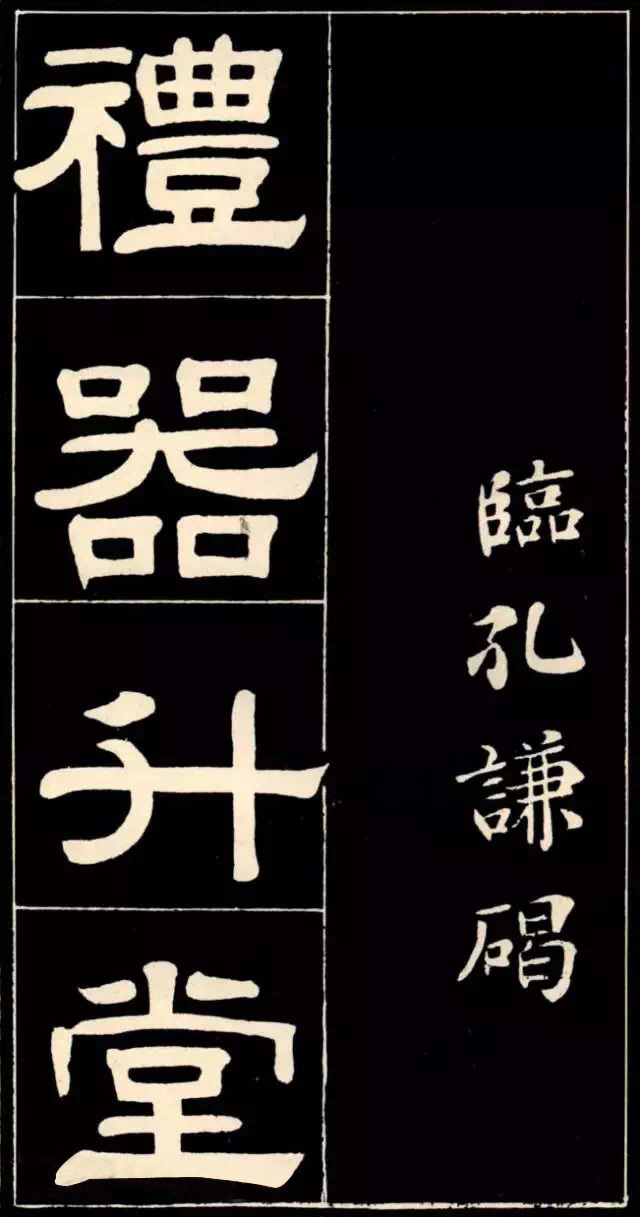 臨孔謙碣
禮器升堂